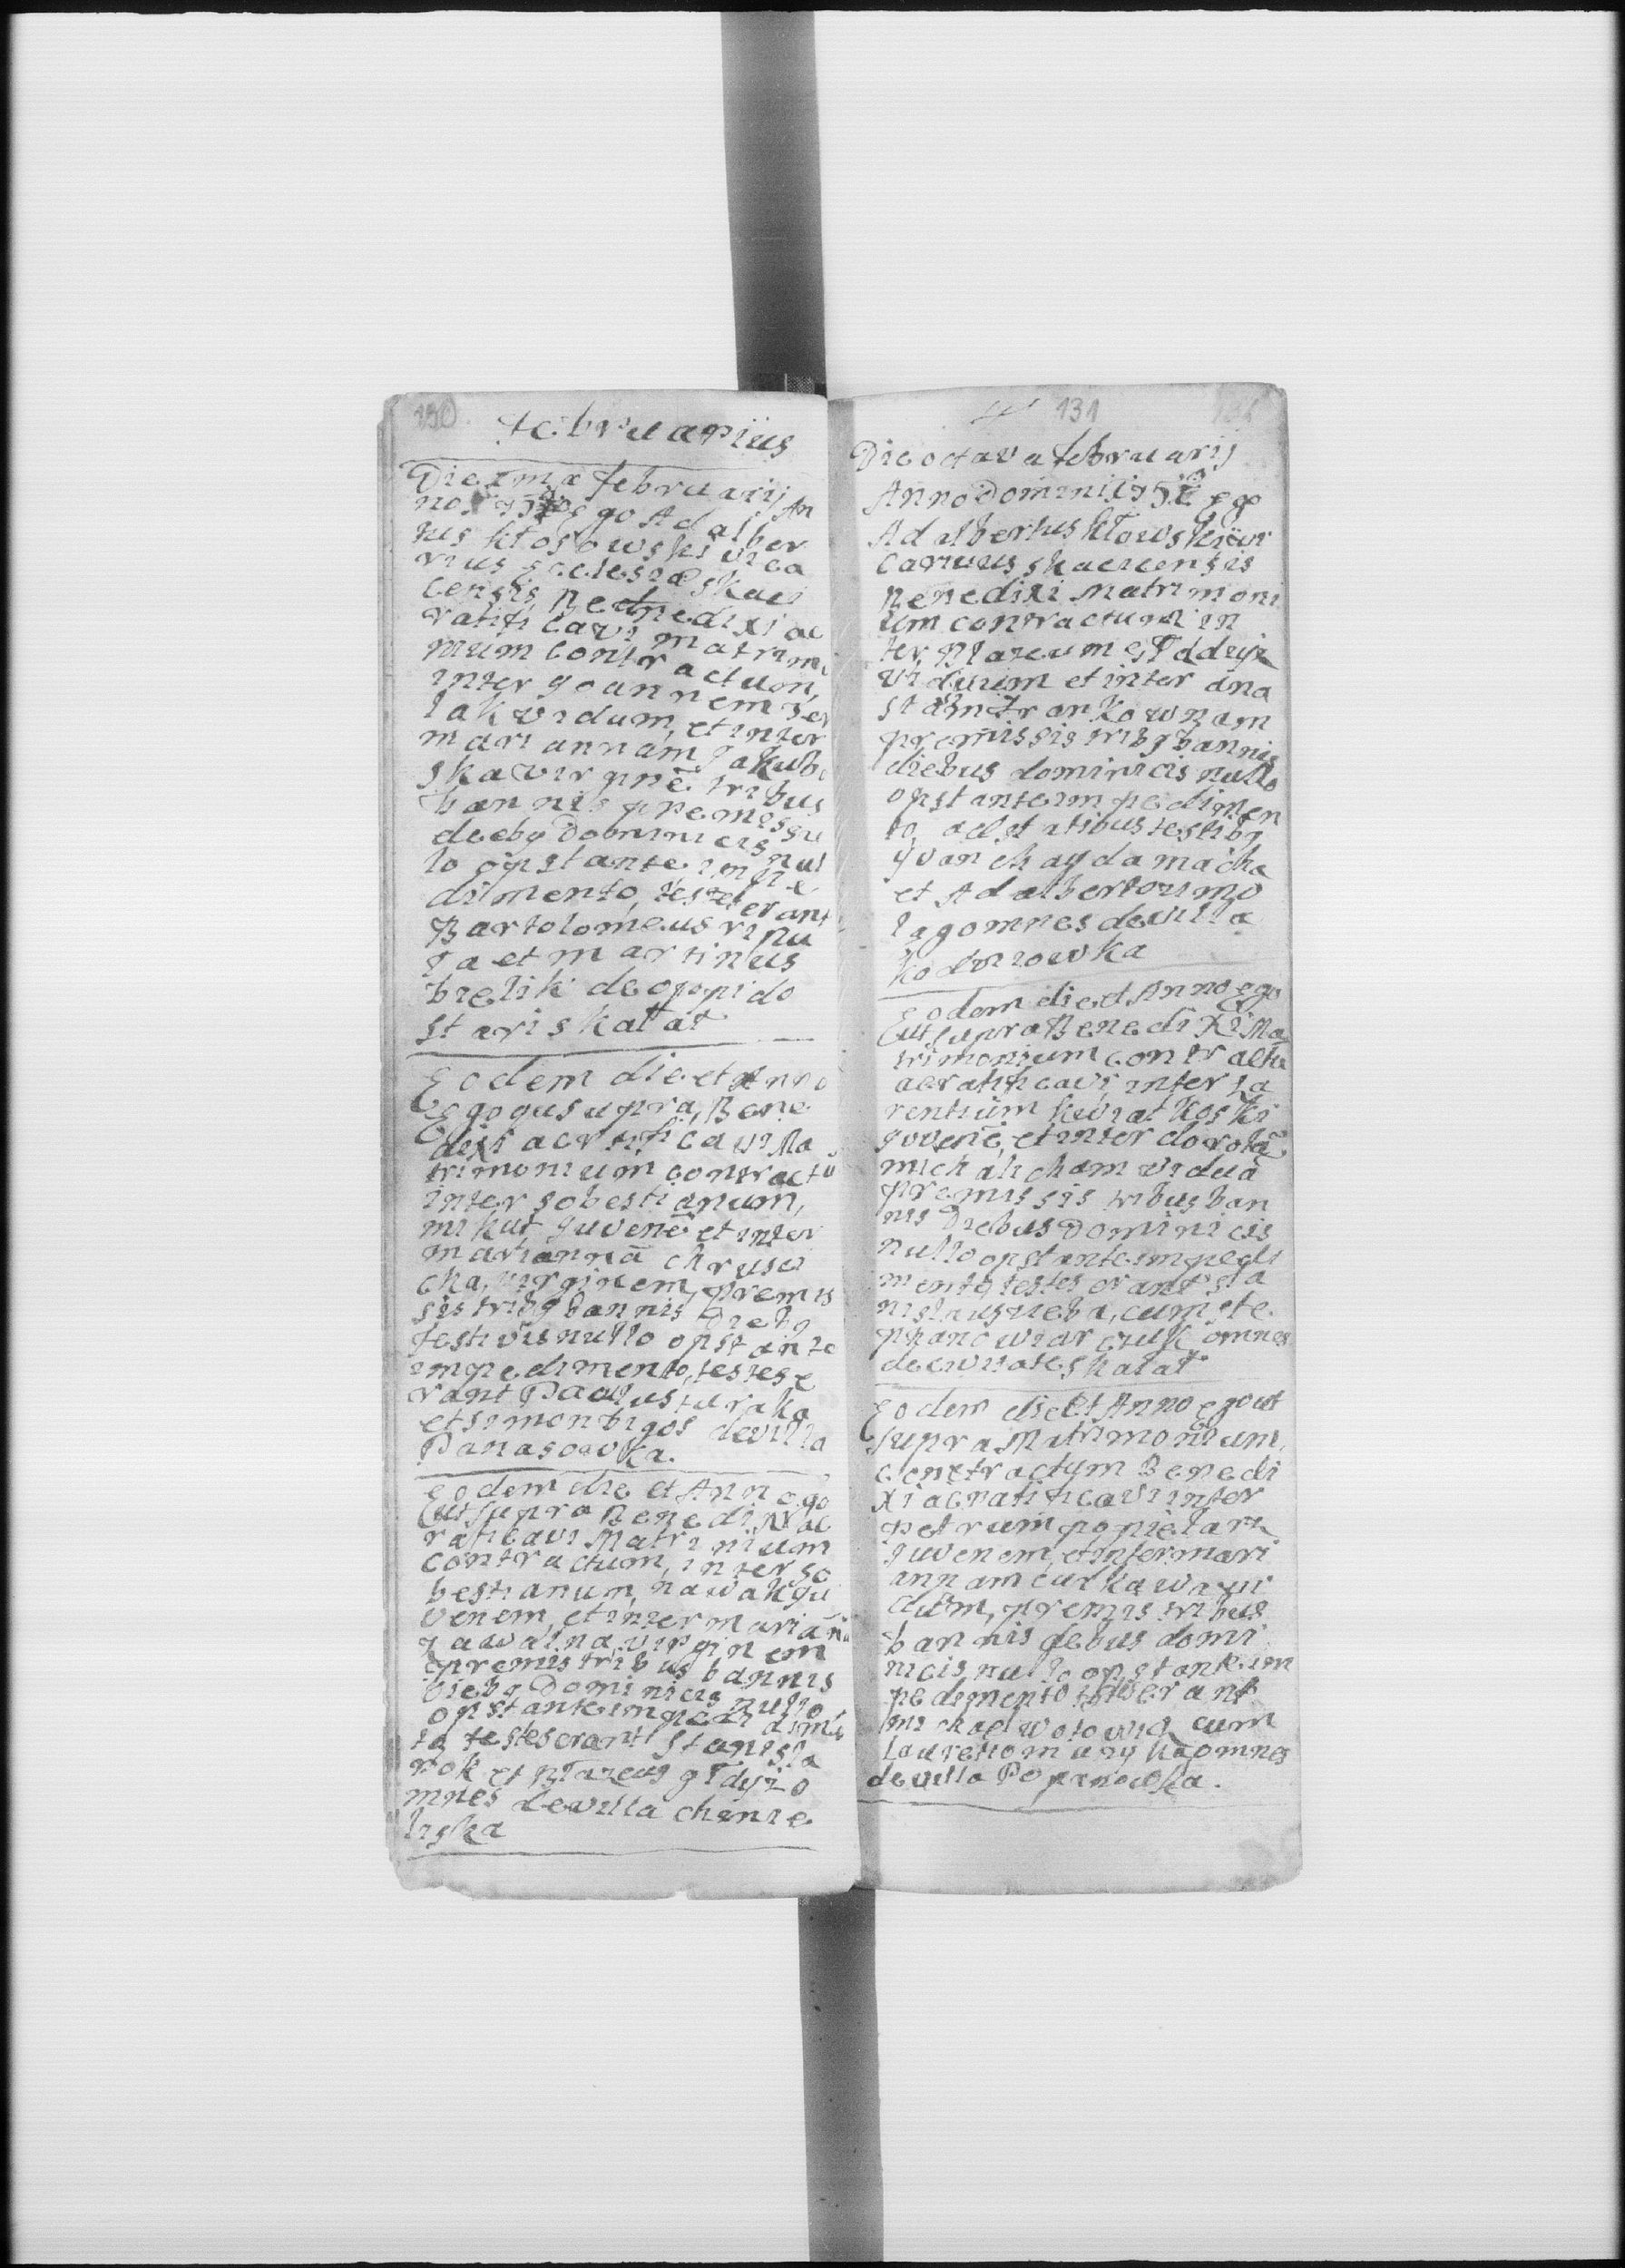 130
februariius
Die 1ma februarij An
no ego Adalber
tus kłosowski vica
rius ecclesiæ skaci
censis Benedixi ac
ratifi cavi matrimo
nium contractum,
inter Joannem
lak vidum, et inter
mariannam Jakubo
ska virginē tribus
bannis premissis
diebq Dominicis nul
lo opstante impe
dimento, testes erant
Bartolomeus ripu
la et martinus
brelik de oppido
stari skałat
Eodem die et Anno
Ego qusupra, Bene
dixi acratificavi Ma
trimonium contractu
inter sobestianum,
mikut guvenē et inter
mariannā chrusci
cha, virginem, premis
sis tribq bannis Diebq
festivis nullo opstante
impedimento, testes e
rant Paulus turaka
et simon bigos de villa
Panasowka.
Eodem die et Ann ego
ut supra Benedixi ac
raticavi Matrinium
contractum, inter so
bestianum, nawak gu
venem, et inter mariānā
virginem
premis tribus bannis
Diebq Dominicis nullo
opstante impedi dimē
to testes erant Stanisla
rok et Blazeus głdyz o
mnes de villa chmie
liska
131
Die octava februarij
Anno Domini ego
Adalbertus kłowski vi
carius skacicensis
Benedixi matrimoni
um contractum in
ter, Blazeum
viduum et inter ana
stam Frankownam
premissis tribq bannis
diebus dominicis nullo
opstante impedimen
to, adstatibus testibq
yvan chaydamacha
et Adalberto zimo
lag omnes de villa
kodmowka
Eodem die et Anno ego
ut supra Benedixi Ma
trimonium contractu
acratificavi inter La
rentium kwiatkoski
guvenē, et inter dorotā
michalicham vidua
premissis tribus ban
nis Diebus Dominicis
nullo opstante impedi
mento testes erant sta
nislaus zieba, cum ste
phano wiarczuk omnes
de civitate skałat
Eodem die et Anno ego ut
supra Matrimonium,
contractum Benedi
xi acratificavi inter
petrum popielarz
guvenem, et inter mari
annam curkawa vi
duam, premis tribus
bannis debus domi
nicis, nullo opstante im
pedimento testes erant
michael wołowic cum
laurenio muzyka omnes
de villa Poprzowka.